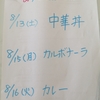 8/13(土) 中華丼
8/15(月) カルボナーラ
8/16(火) カレー